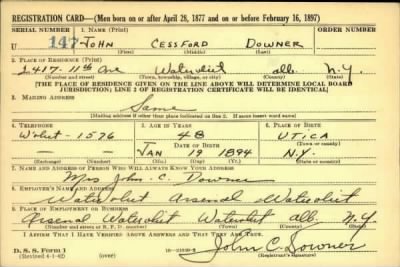 REGISTRATION CARD—(Men born on or after April 28, 1877 and on or before February 16, 1897)
SERIAL NUMBER 1. NAME (Print) ORDER NUMBER
U 147 JOHN CESSFORD DOWNER
2. PLACE OF RESIDENCE (Print)
2417-11th Ave Watervliet alb. N.Y.
(Number and street) (Town, township, village, or city) (County) (State)
[THE PLACE OF RESIDENCE GIVEN ON THE LINE ABOVE WILL DETERMINE LOCAL BOARD
JURISDICTION; LINE 2 OF REGISTRATION CERTIFICATE WILL BE IDENTICAL]
3. MAILING ADDRESS
Same
[Mailing address if other than place indicated on line 2. If same insert word same]
4. TELEPHONE 5. AGE IN YEARS 6. PLACE OF BIRTH
W'vliet-1576 48 UTICA
DATE OF BIRTH (Town or county)
JAN 19 1894 N.Y.
(Exchange) (Number) (Mo.) (Day) (Yr.) (State or country)
7. NAME AND ADDRESS OF PERSON WHO WILL ALWAYS KNOW YOUR ADDRESS
Mrs John C. Downer
8. EMPLOYER'S NAME AND ADDRESS
Watervliet Arsenal Watervliet
9. PLACE OF EMPLOYMENT OR BUSINESS
Arsenal Watervliet Watervliet alb. N.Y.
(Number and street or R. F. D. number) (Town) (County) (State)
I AFFIRM THAT I HAVE VERIFIED ABOVE ANSWERS AND THAT THEY ARE TRUE.
D. S. S. Form 1 John C. Downer
(Revised 4-1-42) (over) (Registrant's signature)